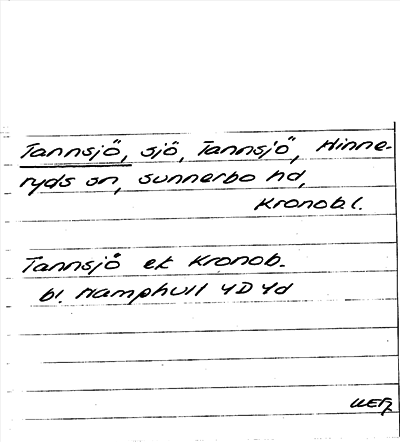 Tannsjö, sjö, Tannsjö, Hinne-
ryds sn, Sunnerbo hd,
Kronob.l.
Tannsjö ek Kronob.
bl. Hamphult 4D 4d